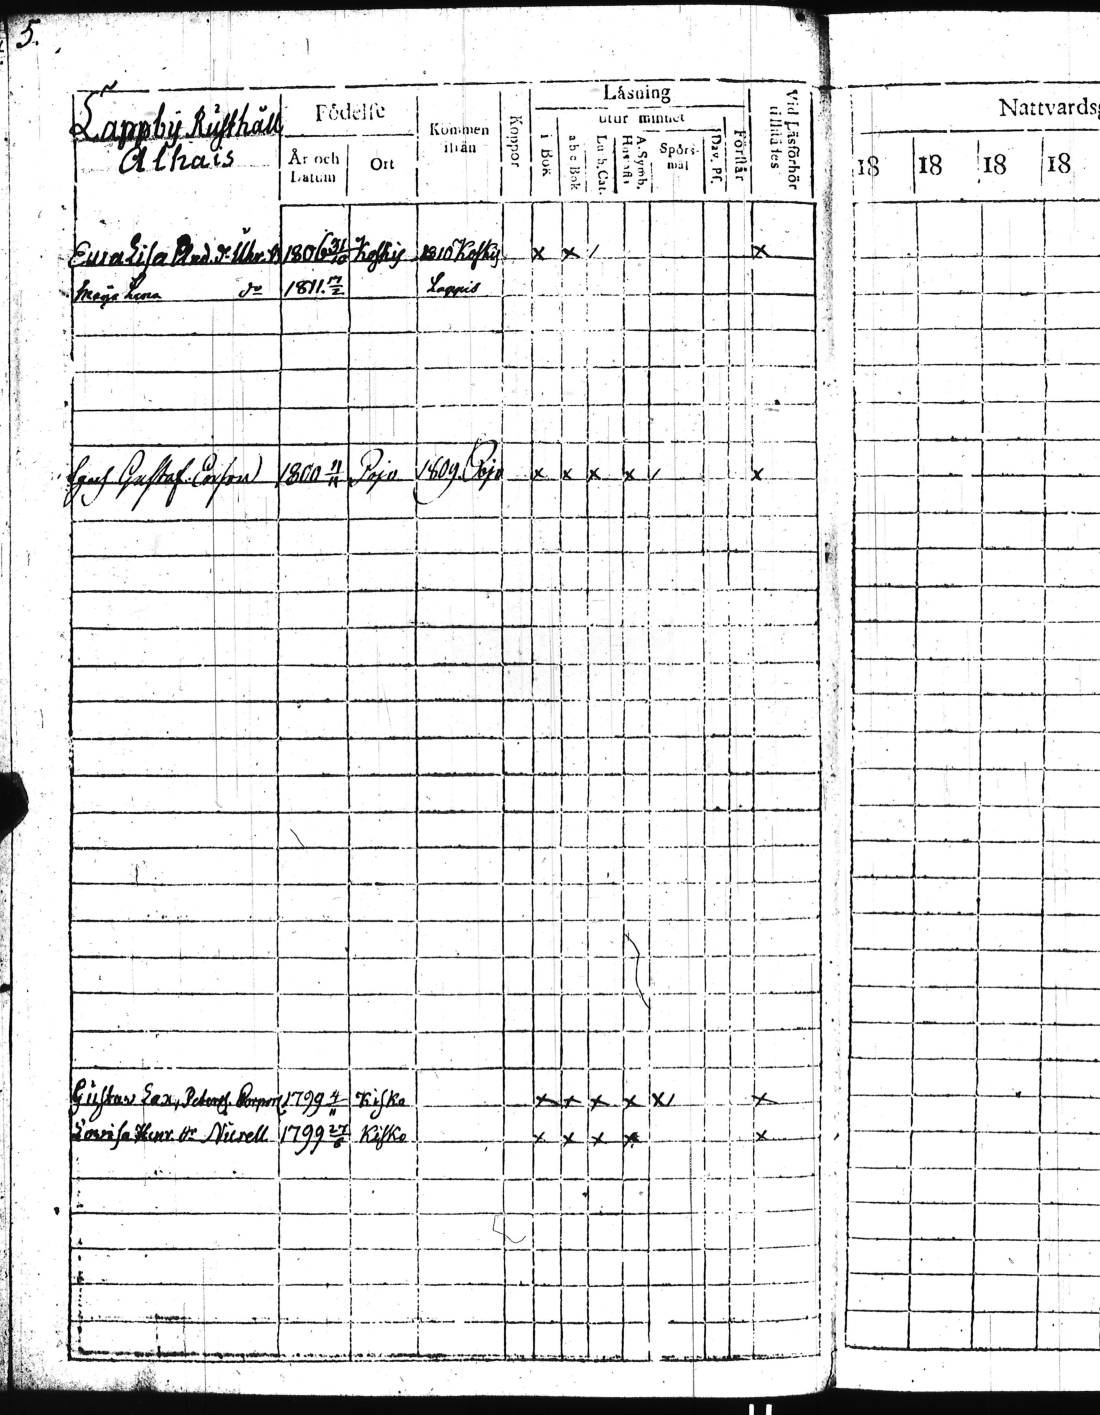 5.
Lappby Rusthåll
Alhais
Födelse
År och Datum
Ort
Kommen ifrån
Koppor
Läsning
utur minnet
i Bok
a b c Bok
Luth. Cat.
A. Symb. Hustafla
Spörsmål
Dav. Ps.
Förstår
Vid Läsförhör tillstädes
Nattvards
18 18 18 18
Eva Lisa And. dr 1806 31/10 Koskis 1810 Koskis x x / x
Maja Lena do 1811. 17/2 Lappis
Gustaf 1800 11/11 Pojo 1809. Pojo x x x x / x
Gustav Lax, Peters. 1799 4/11 Kisko x x x x x/ x
Lovisa Henr. dr Nurell 1799 27/6 Kisko x x x x x